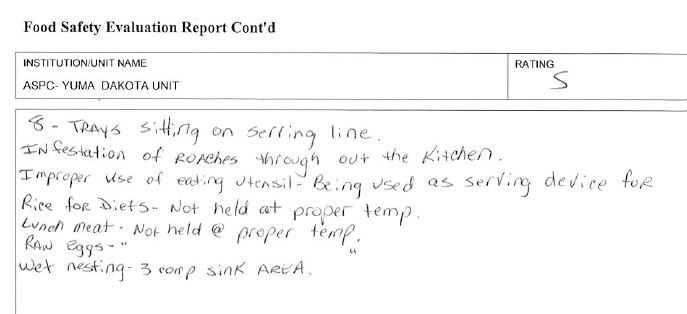 Food Safety Evaluation Report Cont'd
INSTITUTION/UNIT NAME
RATING
ASPC- YUMA DAKOTA UNIT
S
8 - TRAYS sitting on serring line.
INfestation of ROACHes through out the Kitchen.
Improper use of eating utensil- Being used as serving device for
Rice for Diets- Not held at proper temp.
Lunch meat - Not held @ proper temp.
RAW eggs - " "
Wet nesting- 3 comp sink AREA.